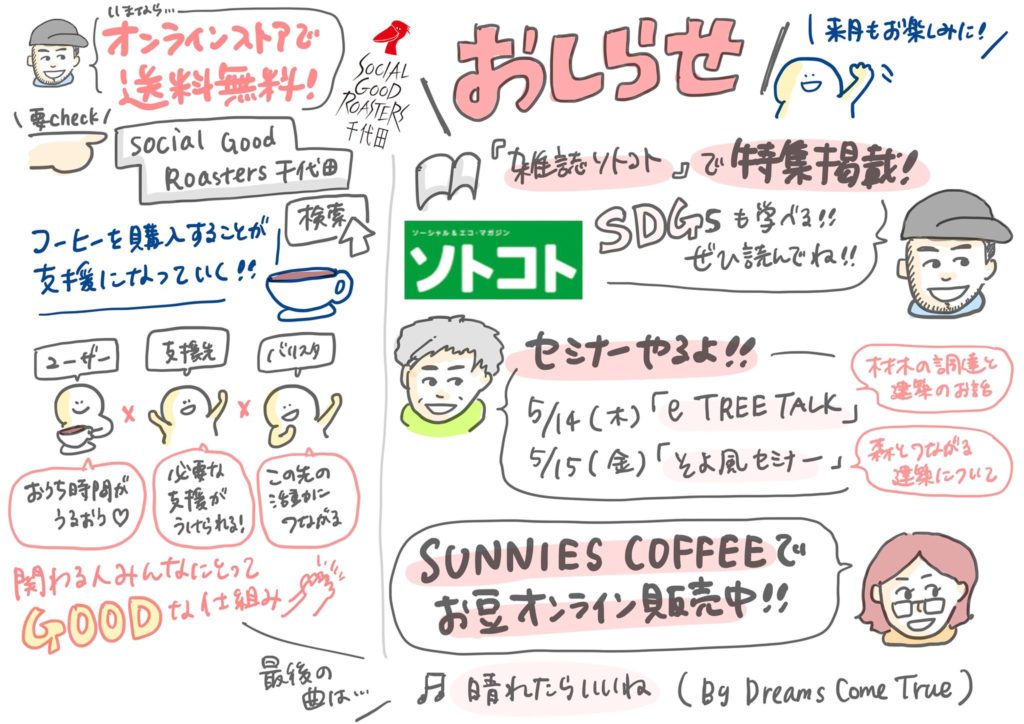 いまなら…
オンラインストアで
送料無料!
要check
Social Good
Roasters 千代田
検索
コーヒーを購入することが
支援になっていく!!
ユーザー
支援先
バリスタ
×
×
おうち時間が
うるおう♡
必要な
支援が
うけられる!
この先の
活動に
つながる
関わる人みんなにとって
GOODな仕組み
SOCIAL
GOOD
ROASTERS
千代田
おしらせ
来月もお楽しみに!
『雑誌ソトコト』で特集掲載!
ソーシャル&エコ・マガジン
ソトコト
SDGsも学べる!!
ぜひ読んでね!!
セミナーやるよ!!
5/14(木)「e TREE TALK」
材木の調達と
建築のお話
5/15(金)「そよ風セミナー」
森とつながる
建築について
SUNNIES COFFEEで
お豆オンライン販売中!!
最後の
曲は…
♫ 晴れたらいいね (By Dreams Come True)